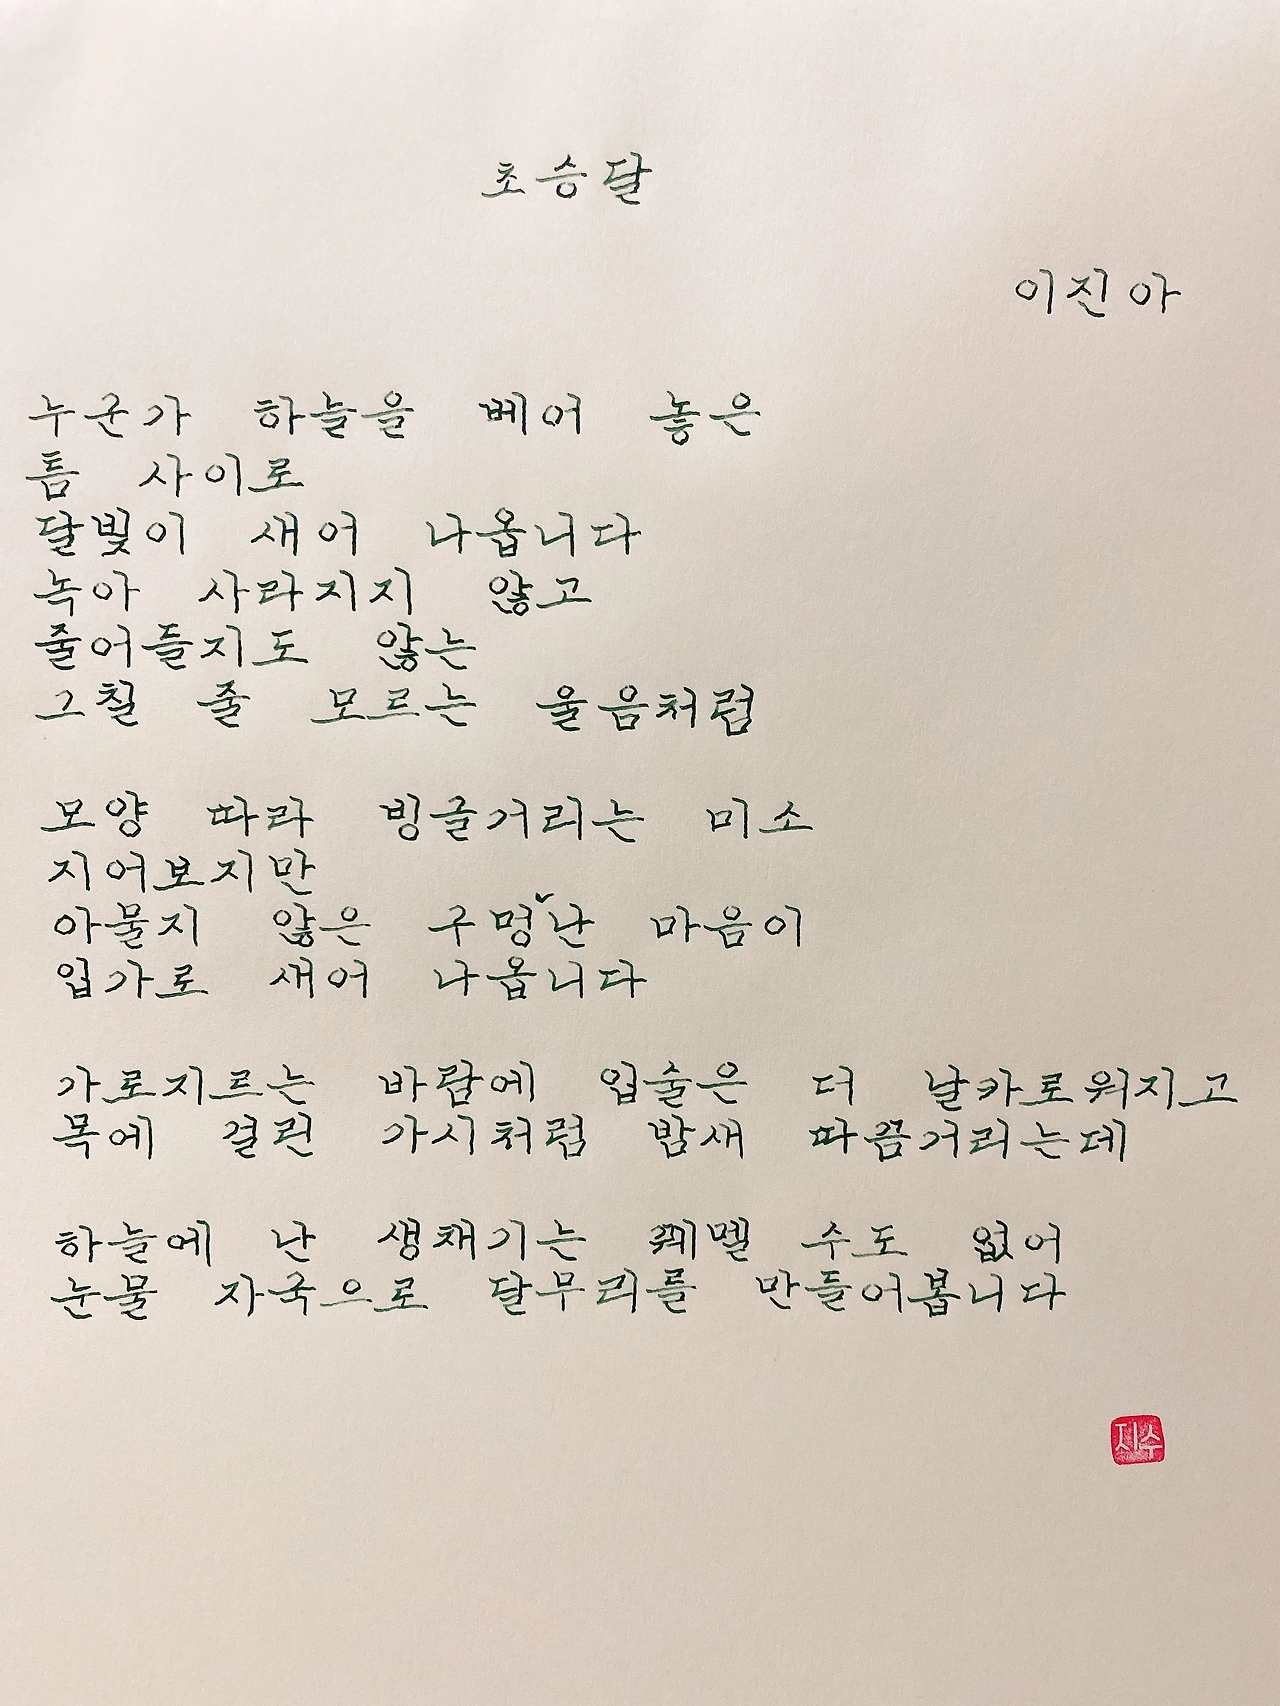 초승달
이진아
누군가 하늘을 베어 놓은
틈 사이로
달빛이 새어 나옵니다
녹아 사라지지 않고
줄어들지도 않는
그칠 줄 모르는 울음처럼
모양 따라 빙글거리는 미소
지어보지만
아물지 않은 구멍˅난 마음이
입가로 새어 나옵니다
가로지르는 바람에 입술은 더 날카로워지고
목에 걸린 가시처럼 밤새 따끔거리는데
하늘에 난 생채기는 꿰멜 수도 없어
눈물 자국으로 달무리를 만들어봅니다
지수